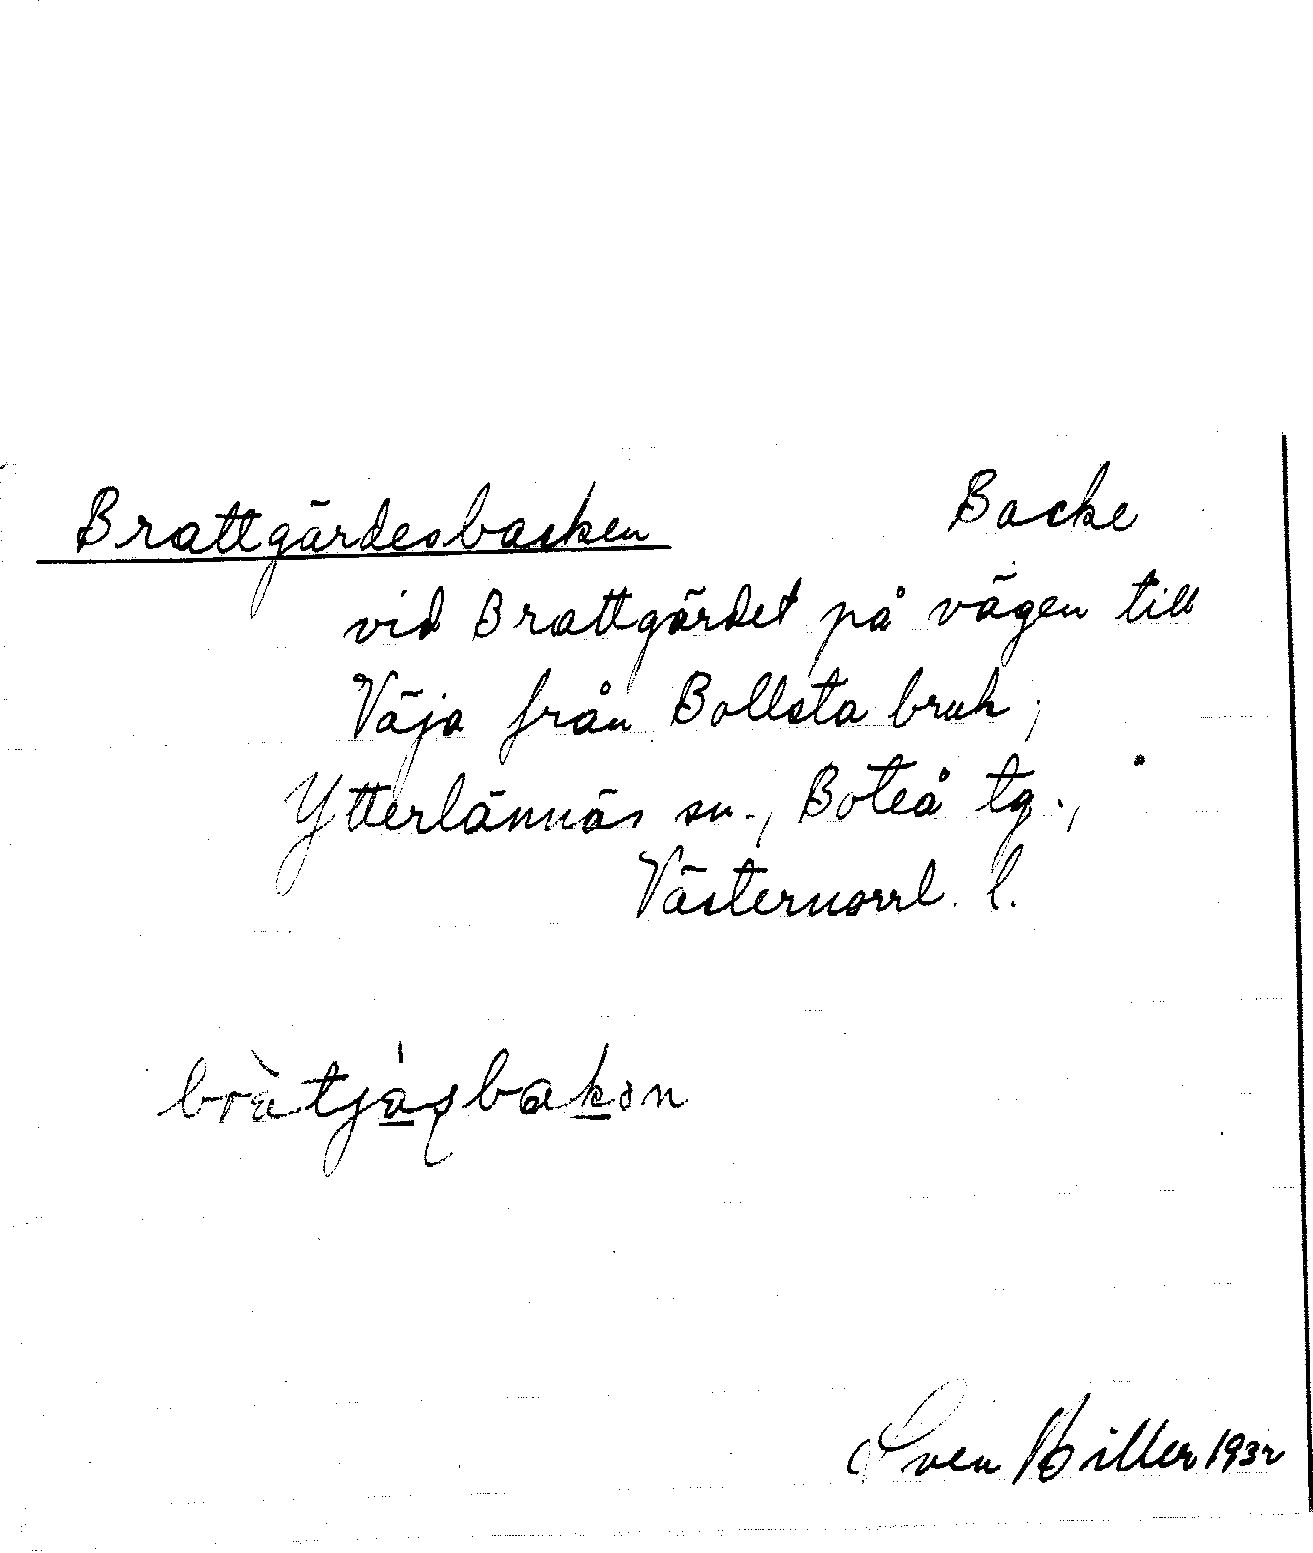 Brattgärdesbacken Backe
vid Brattgärdet på vägen till
Väja från Bollsta bruk,
Ytterlännäs sn., Boteå tg.,
Västernorrl. l.
Sven Hiller 1932